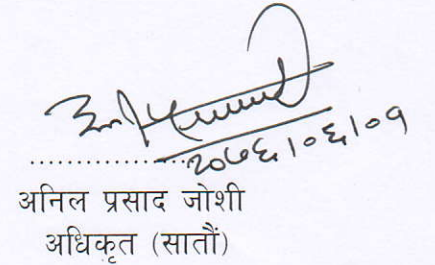 २०७६।०६।०१
अनिल प्रसाद जोशी
अधिकृत (सातौं)